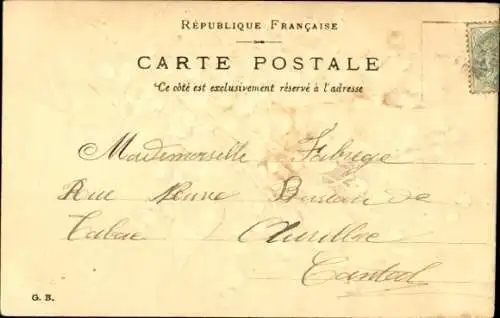 RÉPUBLIQUE FRANÇAISE
CARTE POSTALE
Ce côté est exclusivement réservé à l'adresse
Mademoiselle Fabrege
Rue Neuve de
Tabac Aurillac
Cantal
G. B.